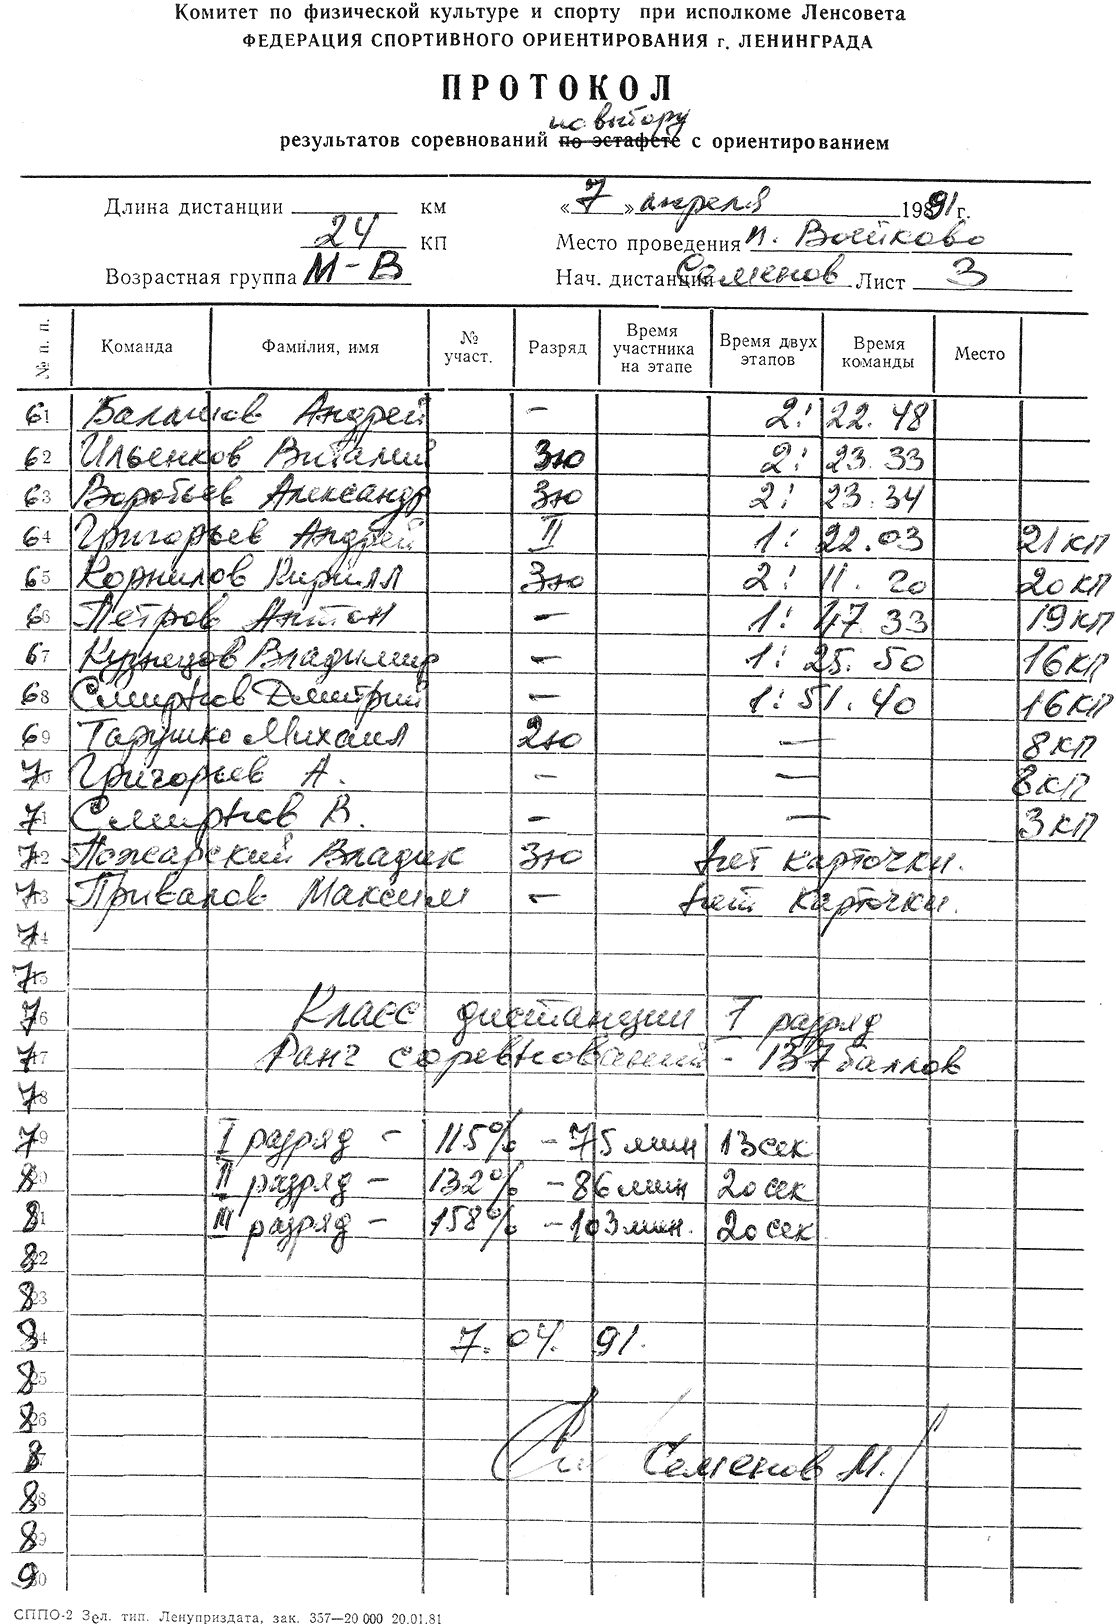 Комитет по физической культуре и спорту при исполкоме Ленсовета
ФЕДЕРАЦИЯ СПОРТИВНОГО ОРИЕНТИРОВАНИЯ г. ЛЕНИНГРАДА
ПРОТОКОЛ
по выбору
результатов соревнований по эстафете с ориентированием
Длина дистанции км «7» апреля 1991 г.
24 КП Место проведения п. Войково
Возрастная группа М-В Нач. дистанции Семенов Лист 3
№ п. п. Команда Фамилия, имя № участ. Разряд Время участника на этапе Время двух этапов Время команды Место
61 Балашов Андрей - 2: 22. 48
62 Ильенков Виталий 3ю 2: 23. 33
63 Воробьев Александр 3ю 2: 23. 34
64 Григорьев Андрей II 1: 22. 03 21 КП
65 Корнилов Кирилл 3ю 2: 11. 20 20 КП
66 Петров Антон - 1: 47. 33 19 КП
67 Кузнецов Владимир - 1: 25. 50 16 КП
68 Смирнов Дмитрий - 1: 51. 40 16 КП
69 Тарушко Михаил 2ю - 8 КП
70 Григорьев А. - - 8 КП
71 Смирнов В. - - 3 КП
72 Пожарский Владик 3ю нет карточки.
73 Привалов Максим - нет карточки.
74
75
76 Класс дистанции I разряд
77 Ранг соревнований - 137 баллов
78
79 I разряд - 115% - 75 мин 13 сек
80 II разряд - 132% - 86 мин 20 сек
81 III разряд - 158% - 103 мин. 20 сек
82
83
84 7. 04. 91.
85
86
87 Семенов М./
88
89
90
СППО-2 Зел. тип. Ленуприздата, зак. 357—20 000 20.01.81